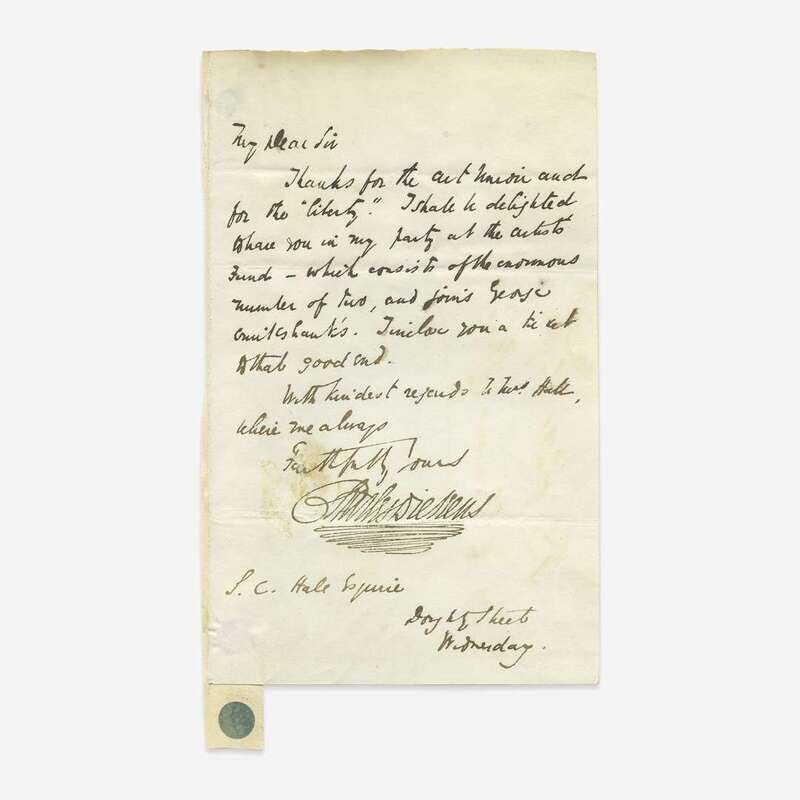 My Dear Sir
Thanks for the art Union and
for the "liberty". I shall be delighted
to have you in my party at the artists'
Fund – which consists of the enormous
number of two, and joins George
Cruikshank's. I inclose you a ticket
to that good end.
With kindest regards to Mrs Hall,
believe me always
Faithfully Yours
Charles Dickens
S. C. Hall Esquire
Doughty Street
Wednesday.